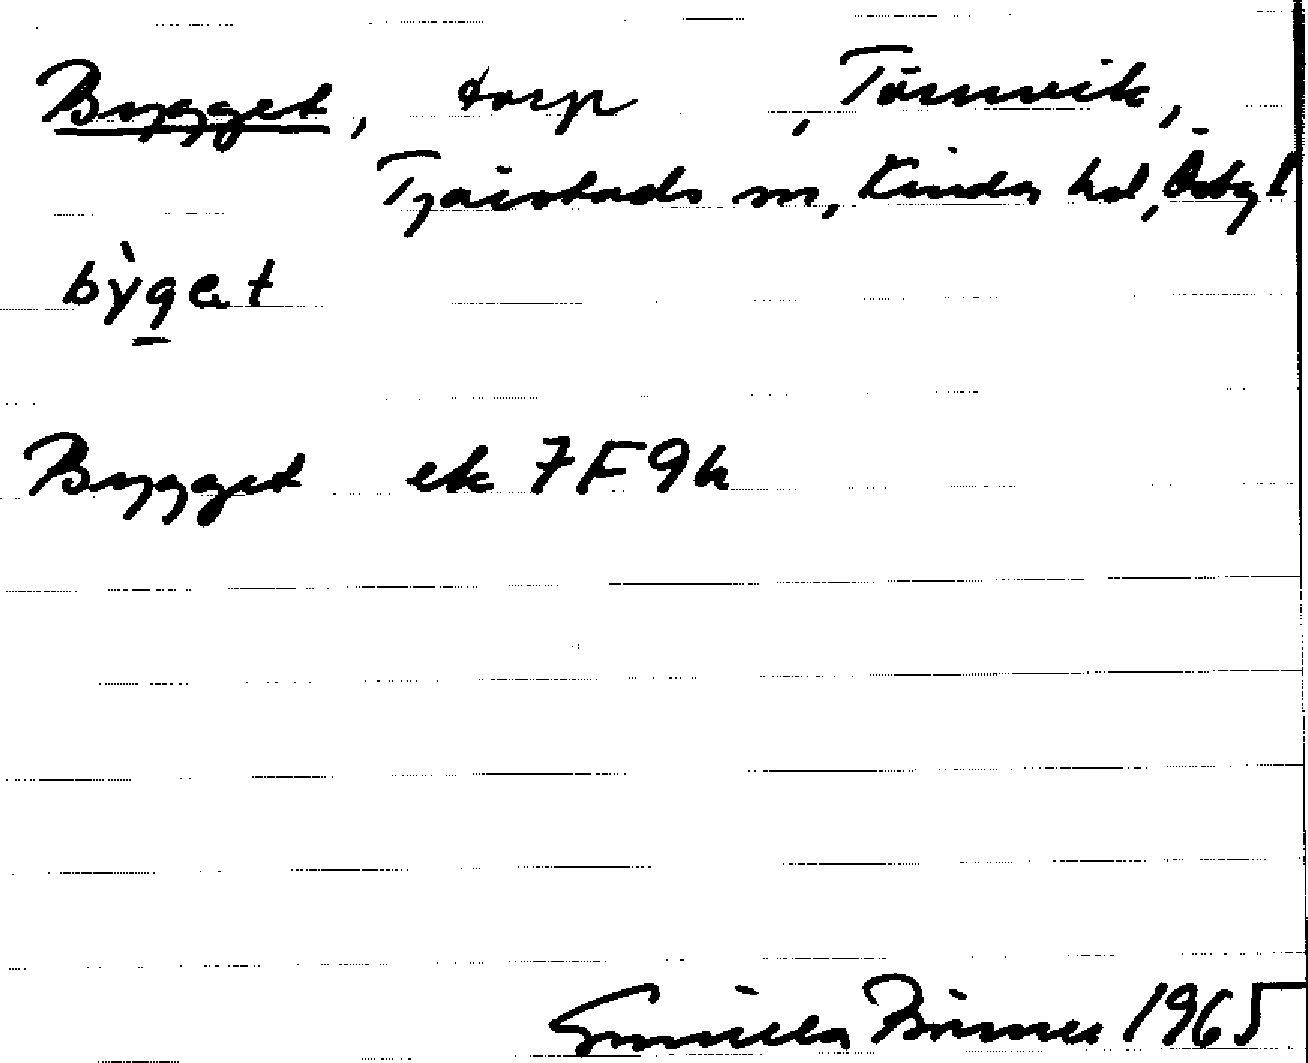 Bygget, torp, Törnevik,
Tjärstads sn, Kinda hd, Östg l
bỳget
Bygget ek 7F9h
Gunilla 1965